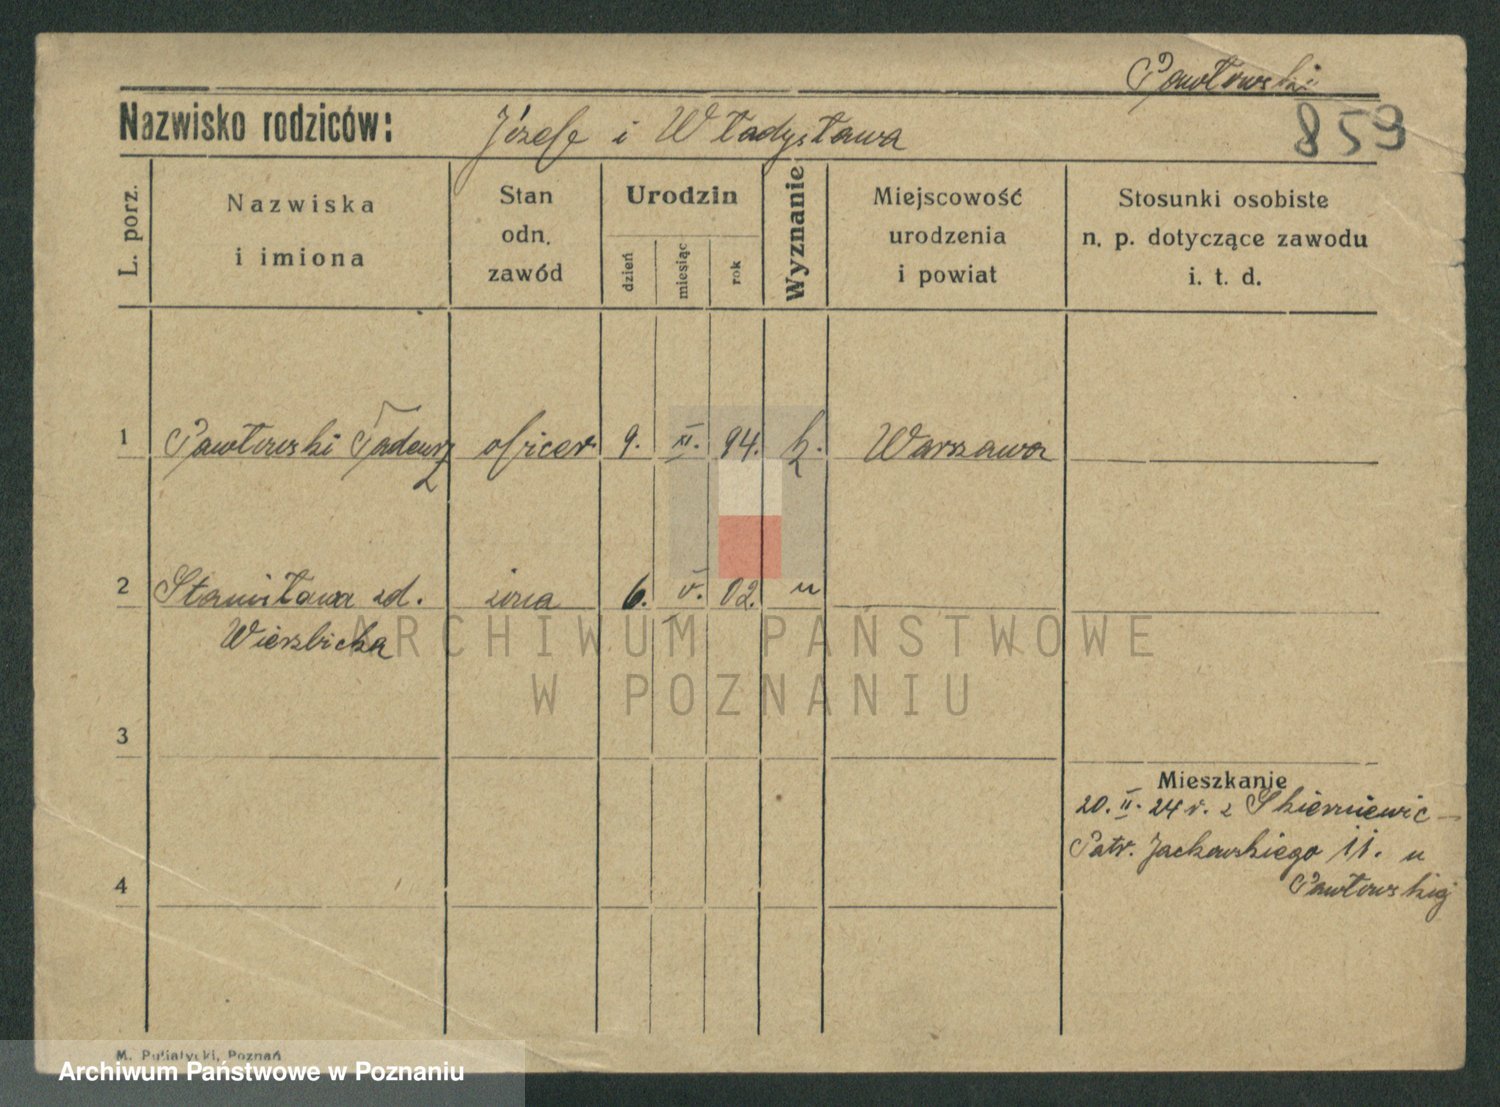 Pawłowski
Nazwisko rodziców: Józefa i Władysława
859
L. porz.
Nazwiska
i imiona
Stan
odn.
zawód
Urodzin
dzień
miesiąc
rok
Wyznanie
Miejscowość
urodzenia
i powiat
Stosunki osobiste
n. p. dotyczące zawodu
i. t. d.
1 Pawłowski Tadeusz oficer 9. XI. 94. k. Warszawa
2 Stanisława zd. żona 6. V. 02. "
Wierzbicka
ARCHIWUM PAŃSTWOWE
W POZNANIU
3
Mieszkanie
20. II. 24 r. z Skierniewic –
Patr. Jackowskiego 11. u
Pawłowskiej
4
M. Putiatycki, Poznań
Archiwum Państwowe w Poznaniu